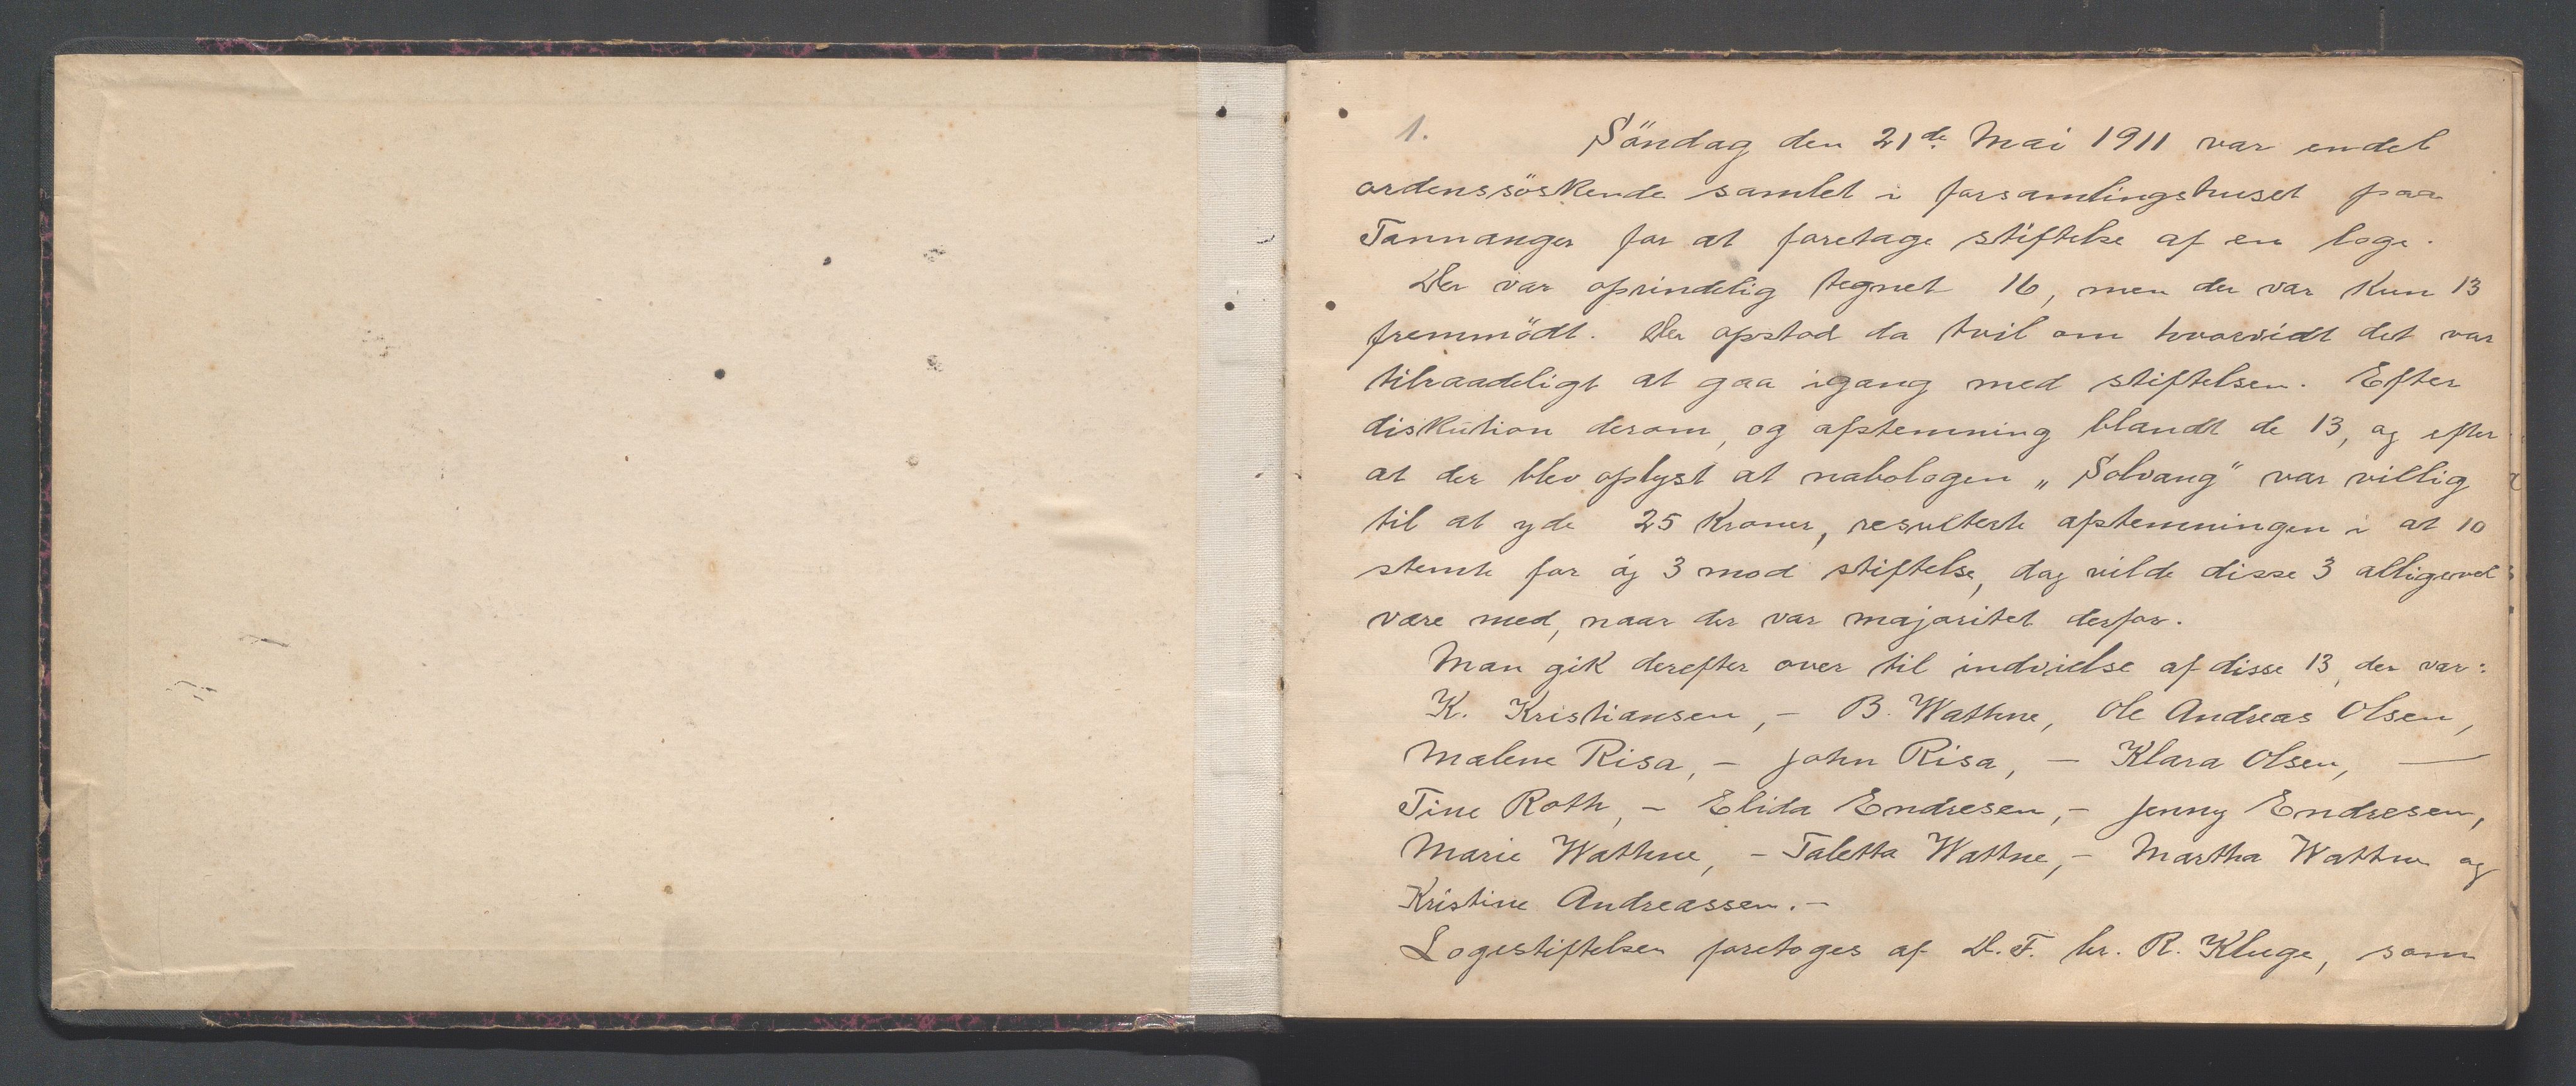 1.
Söndag den 21de Mai 1911 var endel
ordenssöskende samlet i forsamlingshuset paa
Tannanger for at foretage stiftelse af en loge.
Der var oprindelig tegnet 16, men der var kun 13
fremmödt. Der opstod da tvil om hvorvidt det var
tilraadeligt at gaa igang med stiftelsen. Efter
diskution derom, og afstemning blandt de 13, og efter
at der blev oplyst at nabologen „Solvang" var villig
til at yde 25 Kroner, resulterte afstemningen i at 10
stemte for og 3 mod stiftelse, dog vilde disse 3 alligevel
være med, naar der var majoritet derfor.
Man gik derefter over til indvielse af disse 13, der var:
K. Kristiansen, - B. Wathne, Ole Andreas Olsen,
Malene Risa, - John Risa, - Klara Olsen, —
Tine Roth, - Elida Endresen, - Jenny Endresen,
Marie Wathne, - Taletta Wathne, - Martha Wathne og
Kristine Andreassen. -
Logestiftelsen foretoges af D. F. br. R. Kluge, som